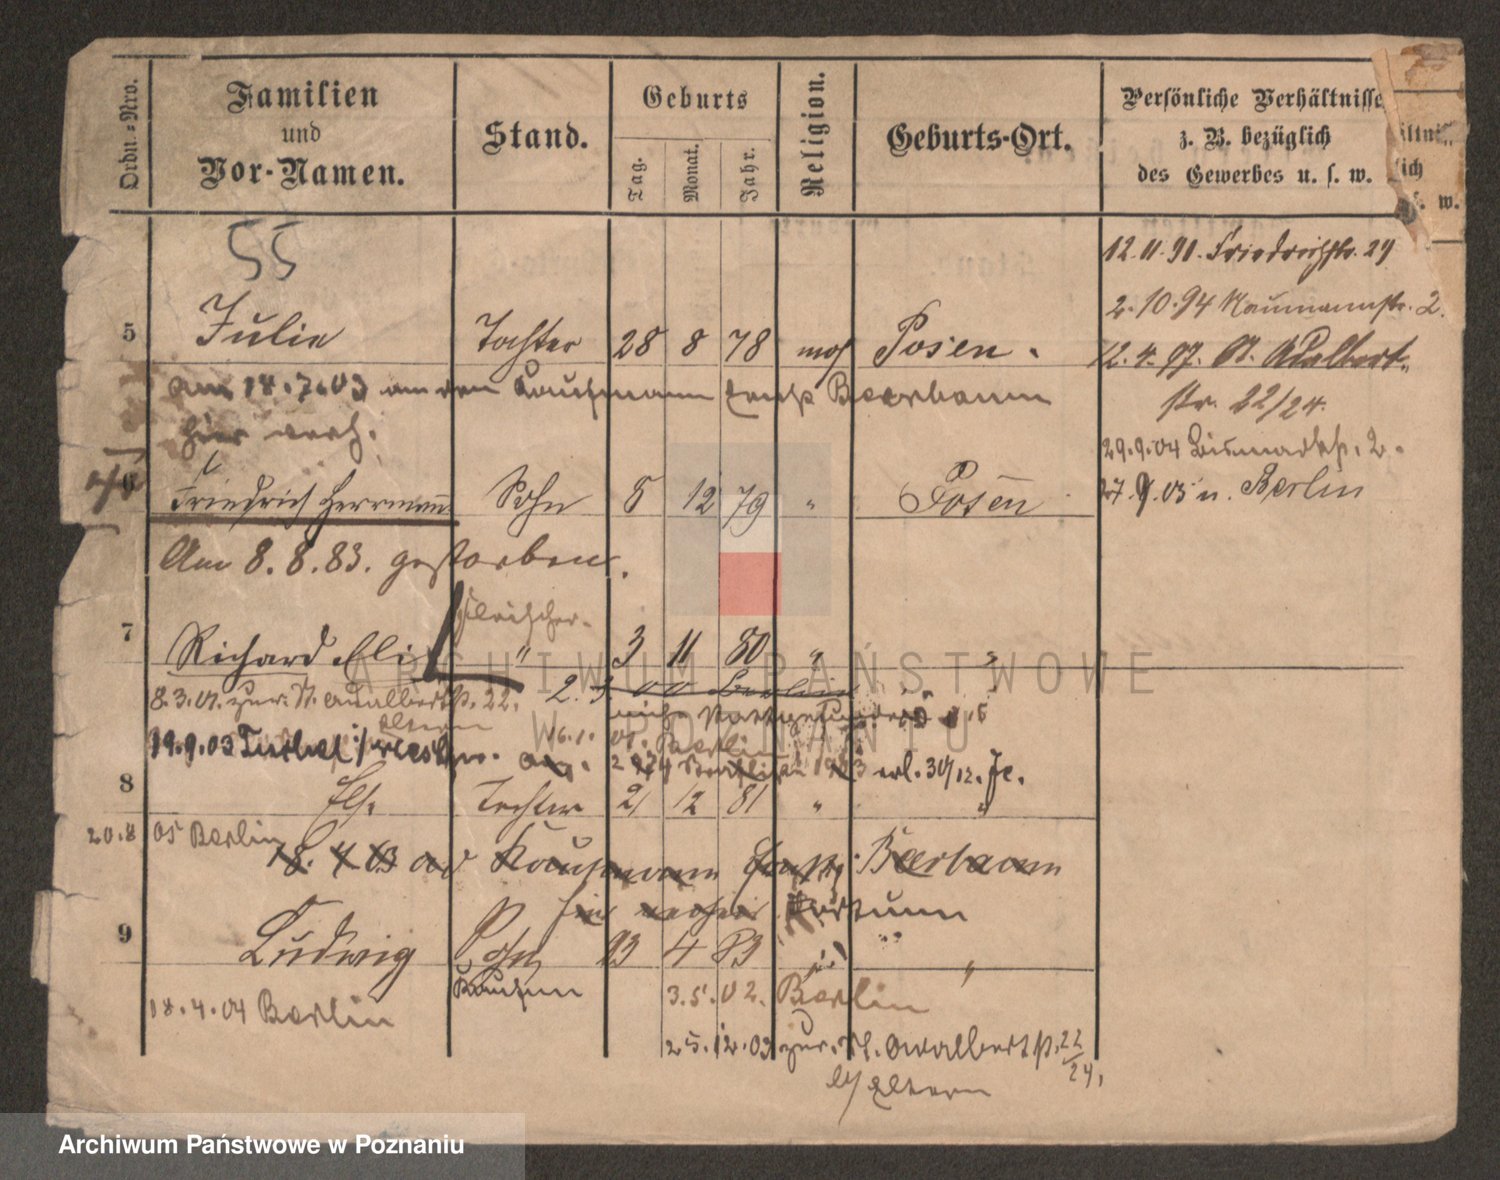 Ordn.-Nro.
Familien
und
Vor-Namen.
Stand.
Geburts
Tag.
Monat.
Jahr.
Religion.
Geburts-Ort.
Persönliche Verhältnisse
z. B. bezüglich
des Gewerbes u. s. w.
ältniss
lich
s. w.
55
12.11.91. Friedrichstr. 29
2.10.94 Naumannstr. 2.
5 Julie Tochter 28 8 78 mos Posen.
12.4.97. St. Adalbert-
str. 22/24.
am 14.7.03 an den Kaufmann Beerbaum
hier verh.
29.9.04 Bismarckstr. 2.
6 Friedrich Herrmann Sohn 5 12 79 " Posen
27.9.05 n. Berlin
Am 8.8.83. gestorben.
Fleischer.
7 Richard " 3 11 80 " "
8.3.01. zur. St. Adalbertstr. 22.
2. 3. 00 Berlin
Eltern
16.1. 01. Berlin
19.9.03
erl. 30/12.
8 Else Tochter 21 12 81 " "
20.8 05 Berlin
18. 4 03 Kaufmann Beerbaum
hier
9 Ludwig Sohn 23 4 83 "
Kaufm
18.4.04 Berlin
3.5.02. Berlin
25.12.03 zur. St. Adalbertstr. 22/24.
b/ Eltern
ARCHIWUM PAŃSTWOWE
W POZNANIU
Archiwum Państwowe w Poznaniu